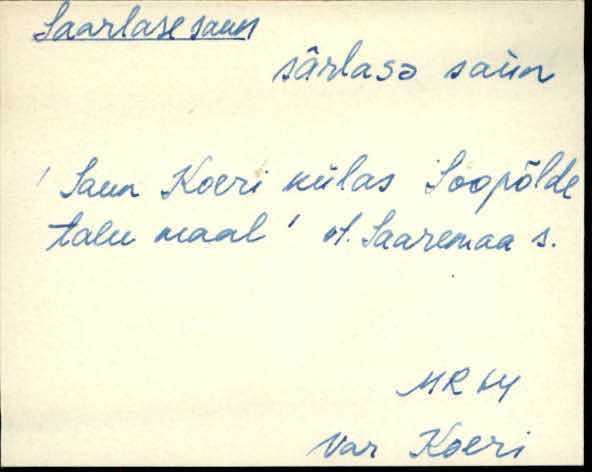 Saarlase saun
sārlasə saùn
' Saun Koeri külas Soopõlde
talu maal ' vt. Saaremaa s.
MR 64
Var Koeri